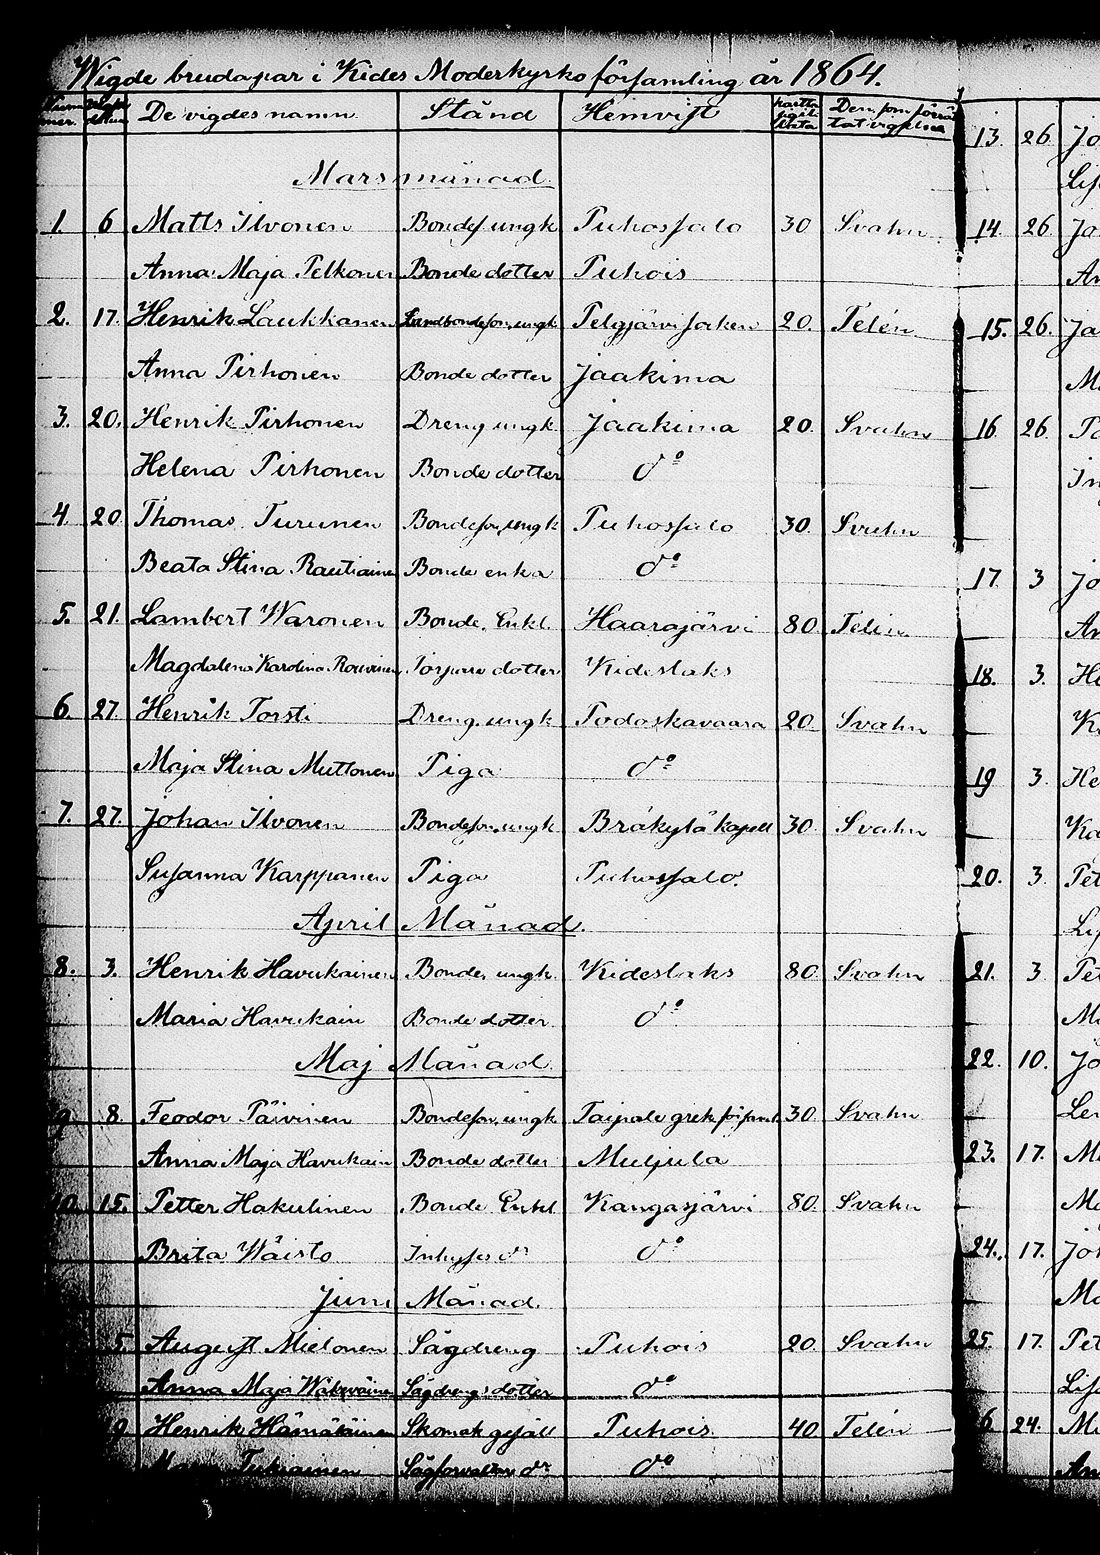 Wigde brudapar i Kides Moderkyrko församling år 1864.
De vigdes namn Stånd Hemvist Den som förrättat vigseln
Mars månad
1. 6 Matts Ilvonen Bondes. ungk. Puhossalo 30 Svahn
Anna Maja Pelkonen Bonde dotter Puhois
2. 17. Henrik Laukkanen Landbondeson, ungk Pelgjärvi socken 20. Telén
Anna Pirhonen Bonde dotter Jaakima
3. 20. Henrik Pirhonen Dreng ungk Jaakima 20. Svahn
Helena Pirhonen Bonde dotter d:o
4. 20 Thomas Turunen Bondeson, ungk Puhossalo 30 Svahn
Beata Stina Rautiainen Bonde enka d:o
5. 21. Lambert Waronen Bonde, Enkl. Haarajärvi 80 Telén
Magdalena Karolina Rouvinen Torpare dotter Kideslaks
6. 27. Henrik Torsti Dreng. ungk Todoskavaara 20 Svahn
Maja Stina Muttonen Piga d:o
7. 27. Johan Ilvonen Bondeson, ungk Bråkylä kapell 30 Svahn
Susanna Karppanen Piga Puhossalo.
April Månad.
8. 3. Henrik Havukainen Bonde, ungk. Kideslaks 80 Svahn
Maria Havukain Bonde dotter d:o
Maj Månad
9 8. Feodor Päivinen Bondeson, ungk Taipale grek församl. 30 Svahn
Anna Maja Havukain Bonde dotter Muljula
10. 15. Petter Hakulinen Bonde Enkl Kangasjärvi 80. Svahn
Brita Wäisto Inhyses dr d:o
Juni Månad.
5. August Mielonen Sågdreng Puhois 20 Svahn
Anna Maja Sågdrengs dotter d:o
9 Henrik Hämäläinen Skomak gesäll Puhois 40 Telén
Tukiainen Sågförvaltar dr d:o
13. 26. Jo
Lis
14. 26. Ja
An
15. 26. Ja
M
16 26 Pa
In
17. 3 Jo
An
18. 3. He
K
19 3. He
Ka
20. 3. Pet
Lis
21. 3 Pet
M
22. 10. Jo
Le
23. 17. M
Ma
24. 17. Joh
Ma
25. 17. Pet
Lis
6 24. M
An